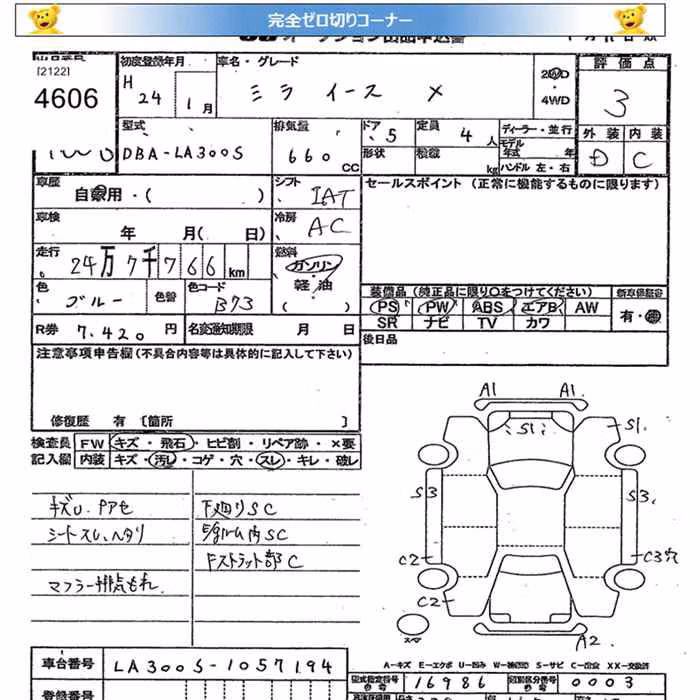 完全ゼロ切りコーナー
[2122]
4606
初度登録年月
H 24年 1月
車名・グレード
ミラ イース X
2WD
・
4WD
評価点
3
外装 内装
D C
型式
DBA-LA300S
排気量
660 CC
ドア 5
形状
定員 4人
積載 kg
ディーラー・並行
モデル年式 年
ハンドル 左・右
車歴
自家用・( )
シフト
IAT
セールスポイント (正常に機能するものに限ります)
車検
年 月( 日)
冷房
AC
走行
24万7千766km
燃料
ガソリン
軽・油
( )
色
ブルー
色替
色コード
B73
装備品 (純正品に限り○をつけてください)
PS PW ABS エアB AW
SR ナビ TV カワ
新車保証書
有・無
R券 7.420円
名変通知期限 月 日
後日品
注意事項申告欄(不具合内容等は具体的に記入して下さい)
修復歴 有 〔箇所 〕
検査員 FW キズ・飛石・ヒビ割・リペア跡・×要
記入欄 内装 キズ・汚レ・コゲ・穴・スレ・キレ・破レ
キズU、Pアセ
シートスU、ヘタリ
マフラー排気もれ
下廻りSC
E/gルーム内SC
Fストラット部C
A1 A1
S1 S1
S3 S3
C2 C3穴
C2
A2
スペア
A-キズ E-エクボ U-凹み W-補修跡 S-サビ C-腐食 XX-交換済
車台番号
LA300S-1057194
型式指定番号 16986
類別区分番号 0003
登録番号